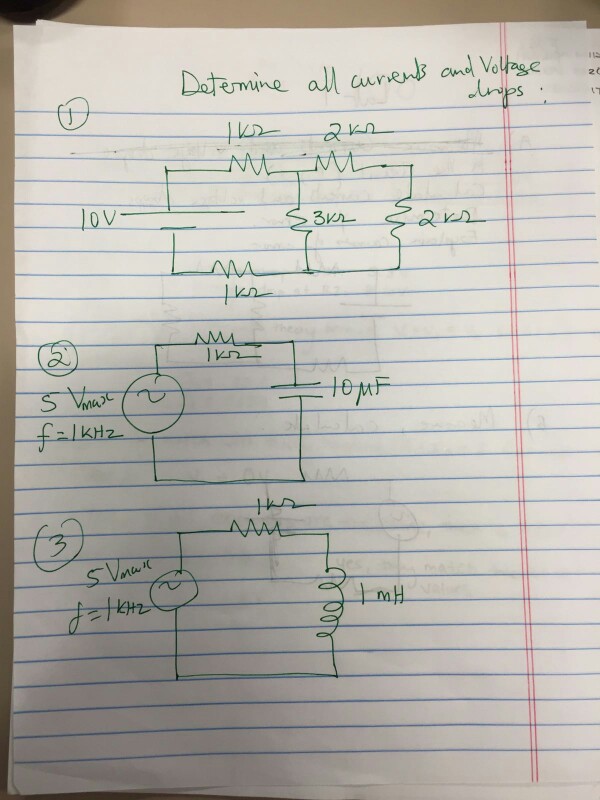 Determine all currents and Voltage
drops :
①
1kΩ 2kΩ
10V 3kΩ 2kΩ
1kΩ
②
1kΩ
5 Vmax 10µF
f=1kHz
1kΩ
③
5Vmax
f=1kHz 1mH